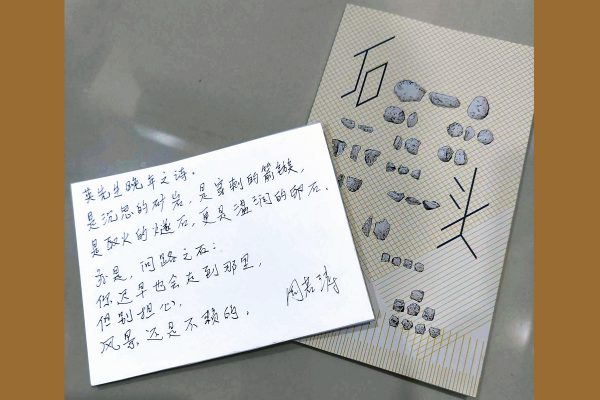 英先生晚年之诗。
是沉思的砂岩,是穿刺的箭镞,
是取火的燧石,更是温润的卵石。
亦是,问路之石:
你迟早也会走到那里,
但别担心,
风景还是不赖的。
周若涛
石头